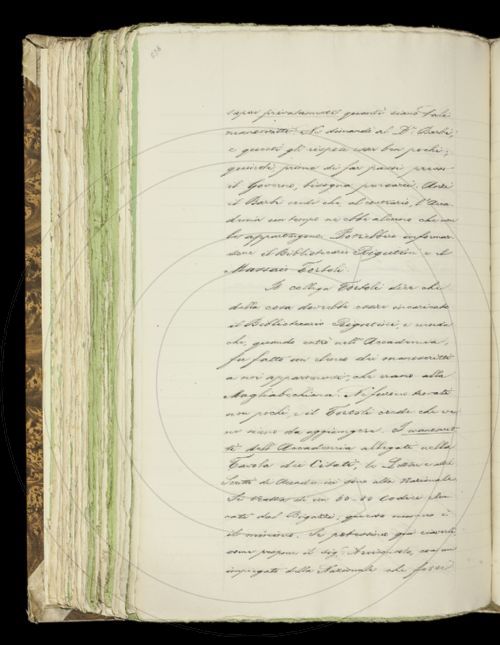 saper privatamente quanti siano tali
manoscritti. Ne dimandi al Dr. Barbi,
e questi gli rispose esser ben pochi;
quindi prima di far passi presso
il Governo, bisogna pensarci. Anzi
il Barbi crede che al contrario, l'Acca-
demia un tempo ne ebbe alcuno che non
le apparteneva. Potrebbero informar-
sene il Bibliotecario Rigutini e il
Massaio Tortoli.
Il collega Tortoli dice che
della cosa dovrebbe essere incaricato
il Bibliotecario Rigutini, e ricorda
che, quando entrò nell'Accademia,
fu fatto un elenco dei manoscritti
a noi appartenenti, che erano alla
Magliabechiana. Ne furono trovati
non pochi, e il Tortoli crede che ve
ne siano da aggiungere. I manoscrit-
ti dell'Accademia allegati nella
Tavola dei Citati, le Lettere e altri
Scritti di Accademici sono alla Nazionale.
Si tratta di un 60-80 Codici
dal Bigazzi; questo numero è
il minimo. Si potrebbe
come propone il sig. con un
impiegato della Nazionale che facci